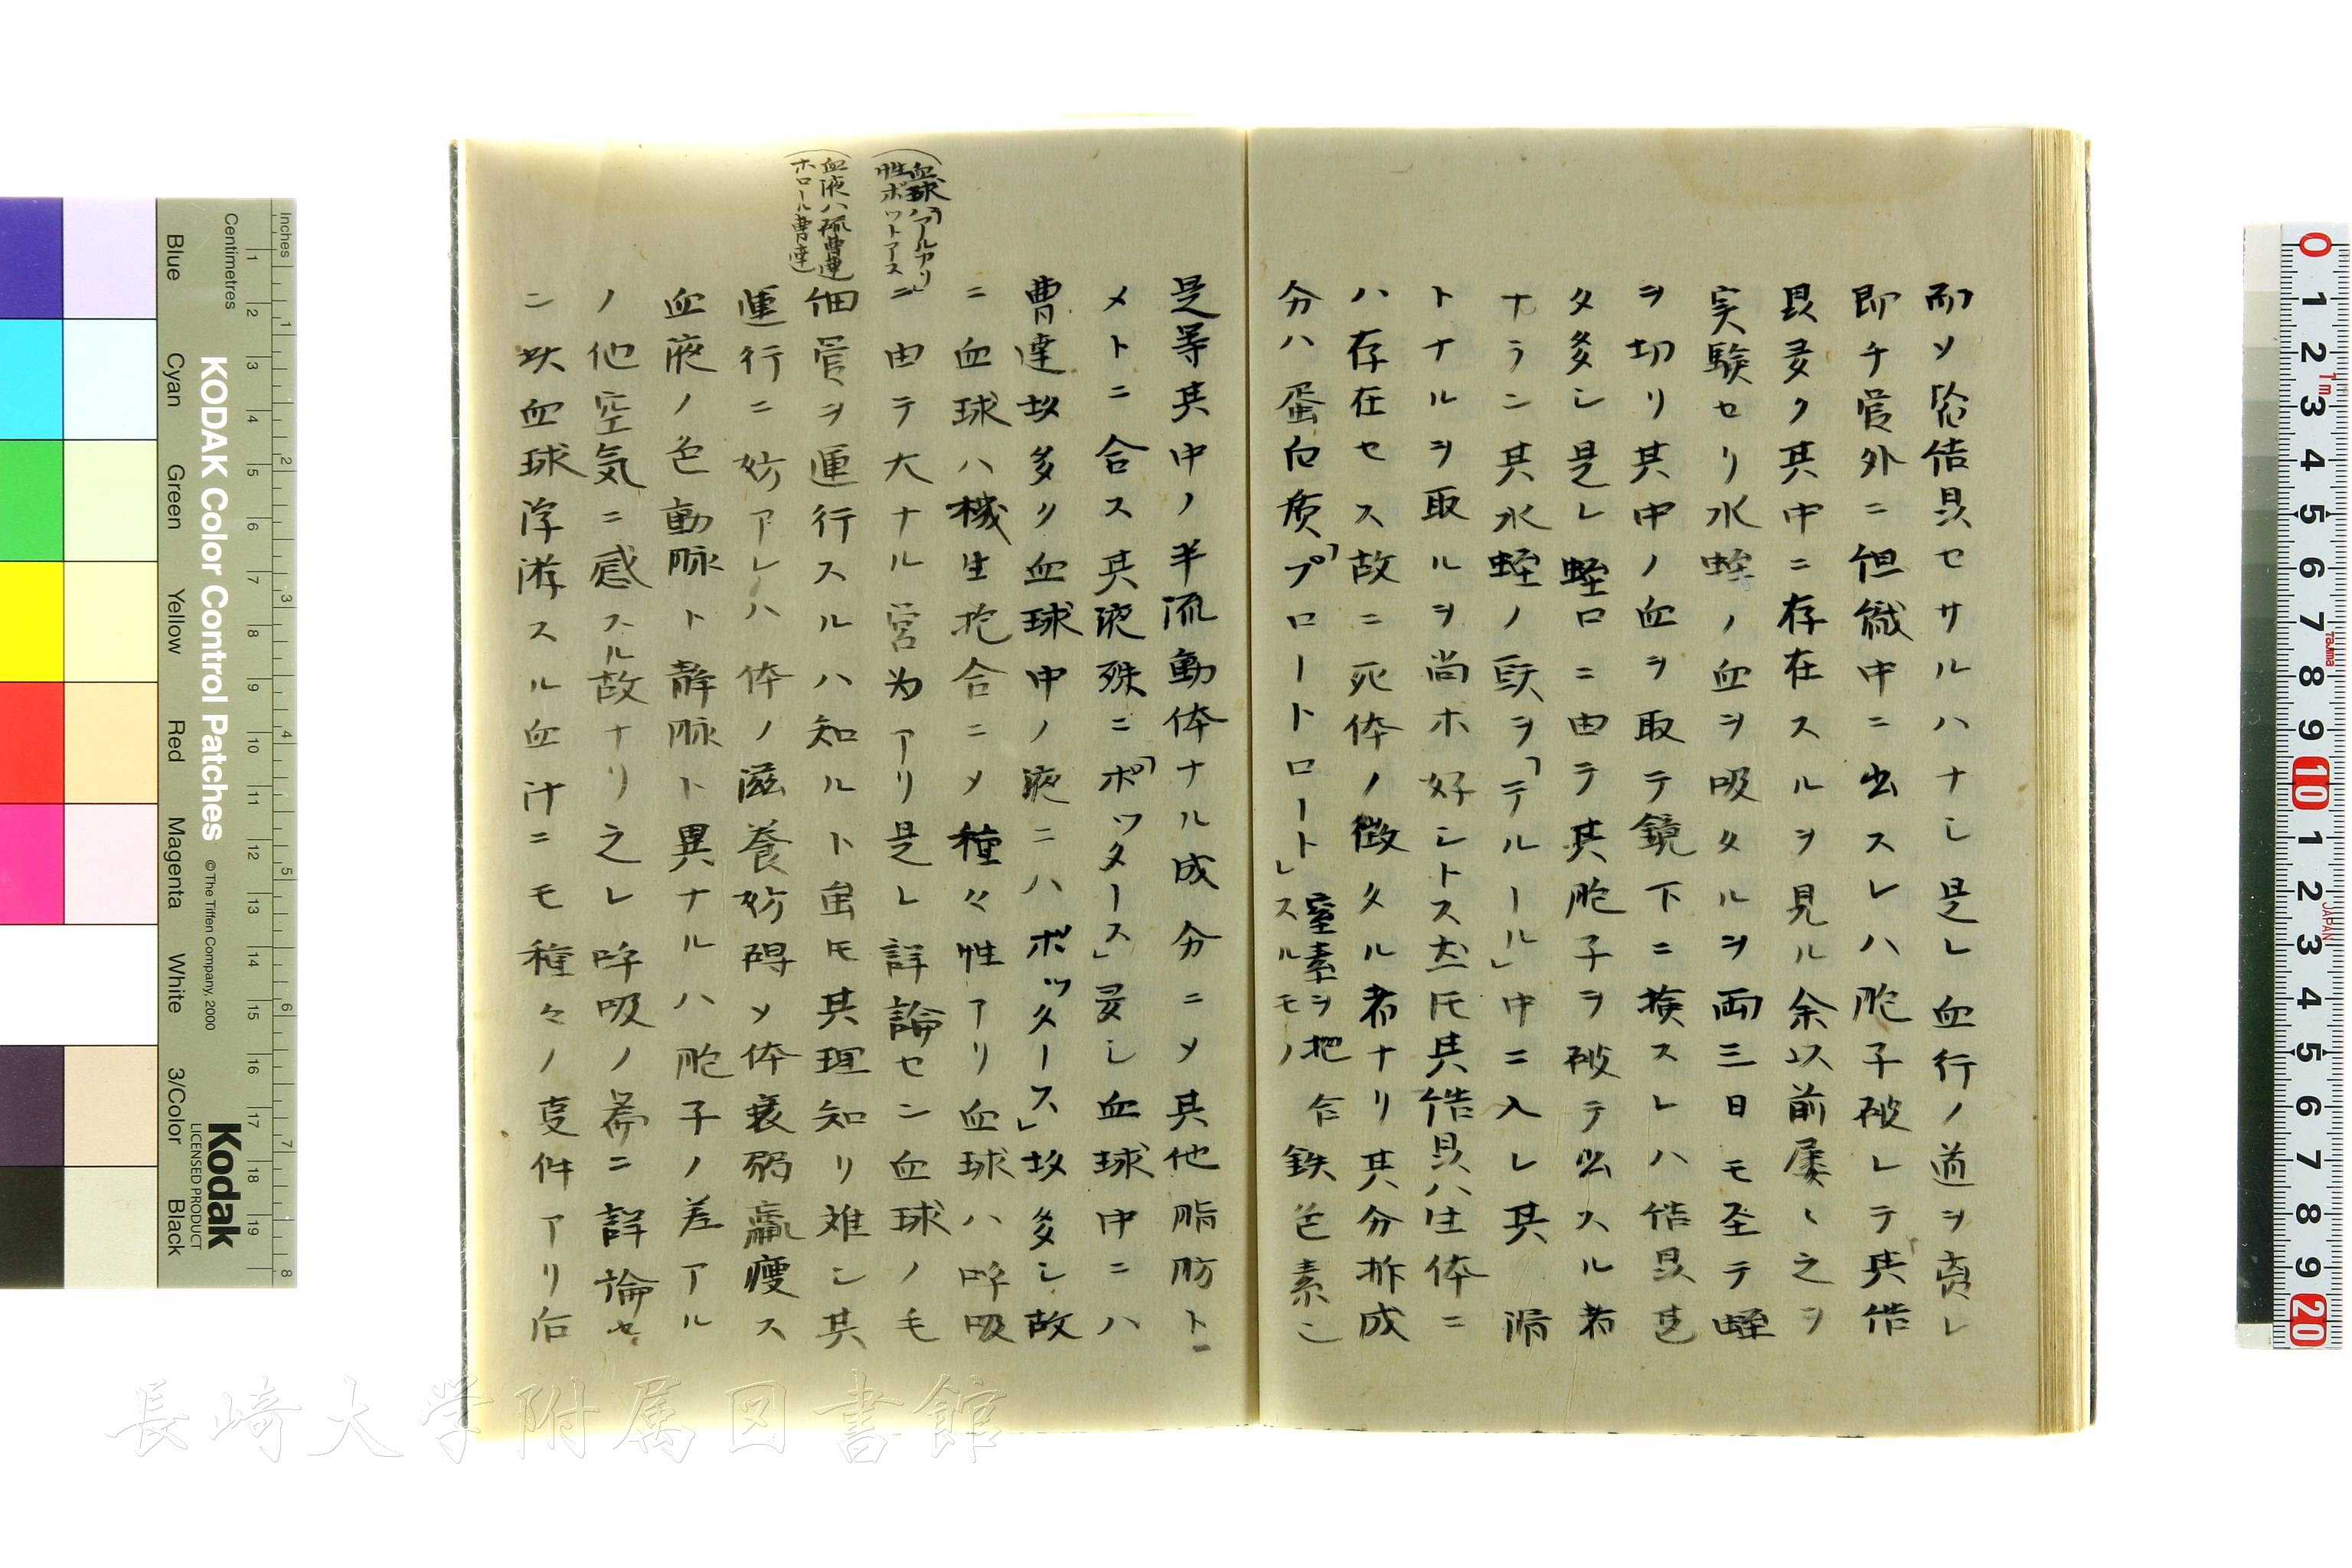 而ソ結晶セサルハナシ是レ血行ノ道ヲ
即チ管外ニ組織中ニ出スレハ胞子破レテ其結
晶多ク其中ニ存在スルヲ見ル余以前屡〻之ヲ
実験セリ水蛭ノ血ヲ吸タルヲ両三日モ至テ蛭
ヲ切リ其中ノ血ヲ取テ鏡下ニ検スレハ結晶甚
タ多シ是レ蛭口ニ由テ其胞子ヲ破テ出スル者
ナラン其水蛭ノ頭ヲ「テルール」中ニ入レ其
トナルヲ取ルヲ尚ホ好シトス 其結晶ハ生体ニ
ハ存在セス故ニ死体ノ徴タル者ナリ其分拆成
分ハ蛋白質「プロートロート」窒素ヲ抱合スルモノ鉄色素ン
是等其中ノ半流動体ナル成分ニメ其他脂肪ト
メトニ合ス其液殊ニ「ポッタース」多シ血球中ニハ
曹達塩多ク血球中ノ液ニハポッタース」塩多シ故
ニ血球ハ機生抱合ニメ種々性アリ血球ハ呼吸
ニ由テ大ナル営為アリ是レ詳論セン血球ノ毛
細管ヲ運行スルハ知ルト雖モ其理知リ難シ其
運行ニ妨アレハ体ノ滋養妨碍メ体衰弱羸痩ス
血液ノ色動脉ト静脉ト異ナルハ胞子ノ差アル
ノ他空気ニ感スル故ナリ之レ呼吸ノ篇ニ詳論セ
ン欤血球浮游スル血汁ニモ種々ノ変件アリ后
(血球ハ「アールカリ」
性ポットアース
(血液ハ硫曹達
ホロール曹達
KODAK Color Control Patches
© The Tiffen Company, 2000
Kodak
LICENSED PRODUCT
Inches
Centimetres
Blue
Cyan
Green
Yellow
Red
Magenta
White
3/Color
Black
長崎大学附属図書館